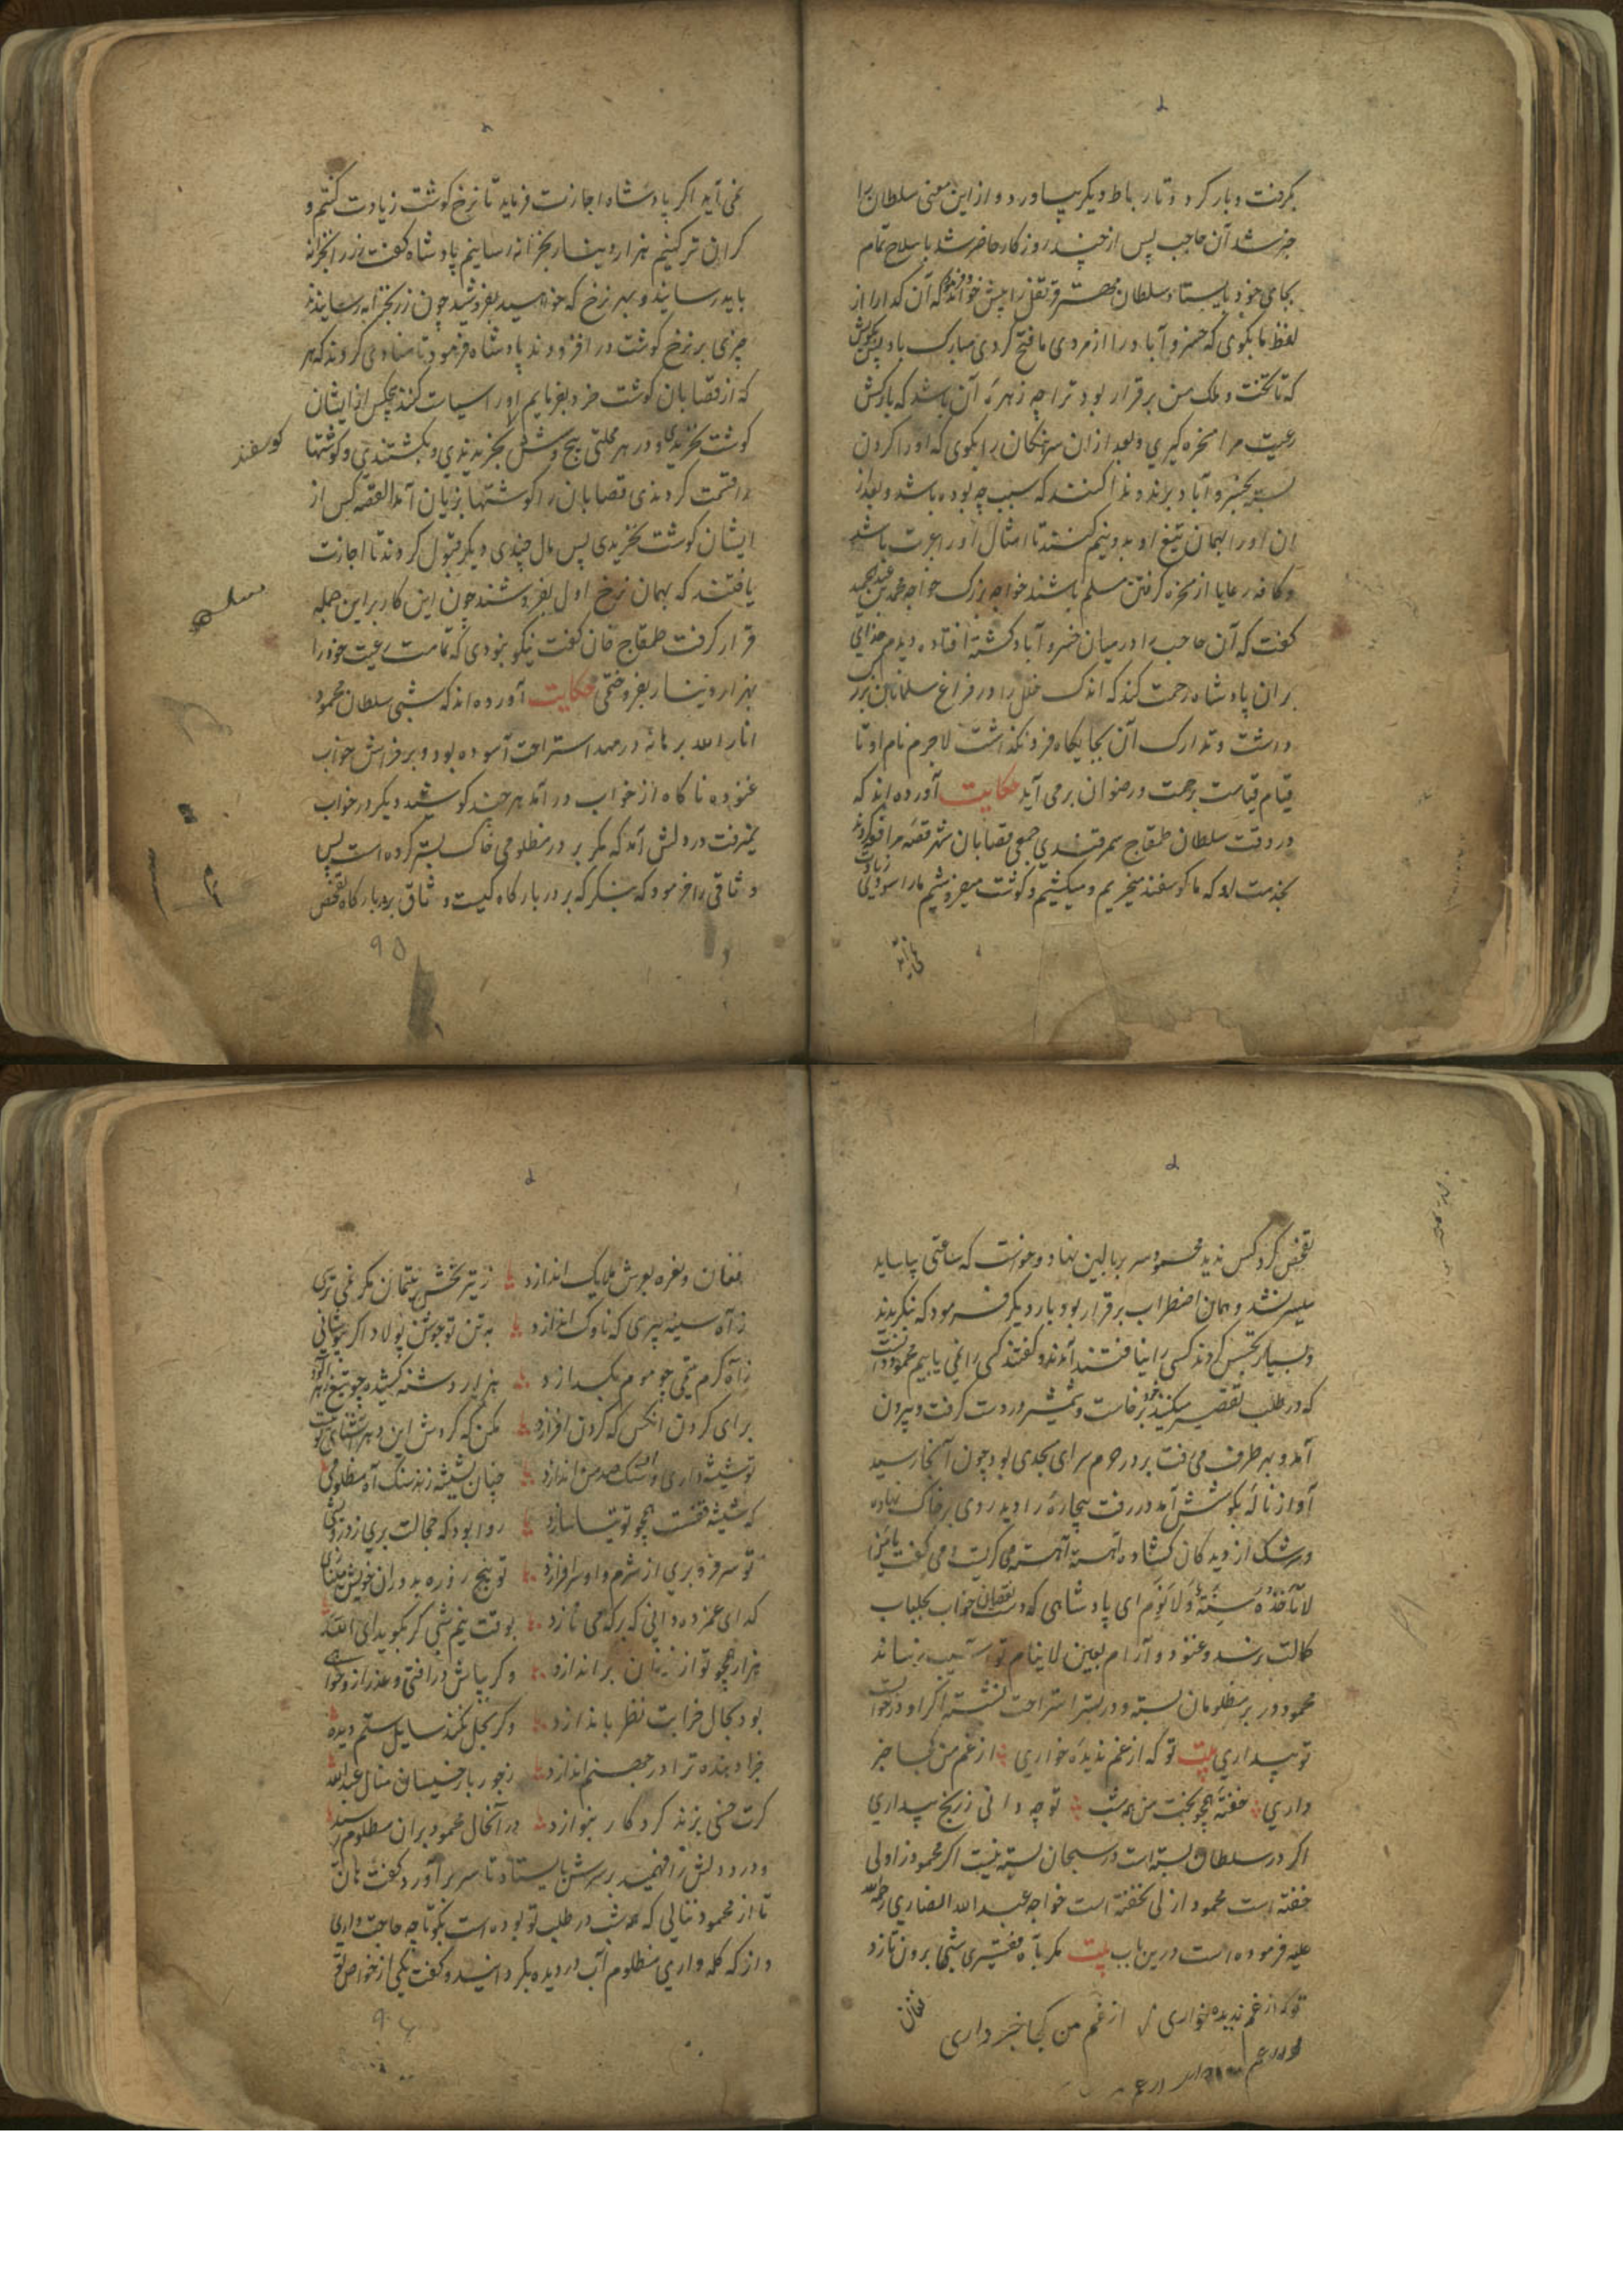 بگرفت و بار کرد و تا رباط دیگر بیاورد و از این معنی سلطان را
خبر شد آن حاجب پس از چند روز کار حاضر شد با سلاح تمام
بجای خود بایستاد سلطان مهتر قرنفل را پیش خواند و فرمود که آن کدا را از
لفظ ما بکوی که خسرو آباد را از مردی ما فتح کردی مبارک باد پس بکویش
که تا تخت و ملک من برقرار بود ترا چه زهرهٔ آن باشد که بارکش
رعیت مرا سخره کیری و بعد ازان سرهنکان را بکوی که او را کردن
بسته بخسرو آباد برند و ندا کنند که سبب چه بوده باشد و بعد از
ان او را بهمان تیغ او بدو نیم کنند تا امثال او را عبرت باشد
و کافه رعایا از سخره کرفتن مسلم باشند خواجه بزرک خواجه محمد بن عبدالحمید
کفت که آن حاجب را در میان خسرو آباد کشته افتاده دیدم خدای
بران پادشاه رحمت کند که اندک خلل را در فراغ مسلمانان بزرک
داشت و تدارک آن بجایکاه فرو نکذاشت لاجرم نام او تا
قیام قیامت برحمت و رضوان برمی آید حکایت آورده اند که
در وقت سلطان طمغاج سمرقندی جمعی قصابان شهر قصه مرافعه کردند
بخدمت او که ما کوسفند میخریم و میکشیم و کوشت میفروشیم ما را سودی زیادت
نمی آید
نمی آید اکر پادشاه اجازت فرماید تا نرخ کوشت زیادت کنیم و
کران تر کنیم هزار دینار بخزانه رسانیم پادشاه کفت زر بخزانه
باید رسانید و بهر نرخ که خواهید بفروشید چون زر بخزانه رسانیدند
چیزی بر نرخ کوشت در افزودند پادشاه فرمود تا منادی کردند که هر
که از قصابان کوشت خرد بفرمایم او را سیاست کنند هیچکس از ایشان
کوشت نخریدی و در هر محلتی پنج و شش بخریدندی و بکشتندی و کوشتها
کوسفند
را قسمت کردندی قصابان را کوشتها بزیان آمد القصه کس از
ایشان کوشت نخریدی پس مال چندی دیکر قبول کردند تا اجازت
یافتند که بهمان نرخ اول بفروشند چون این کار براین جمله
قرار کرفت طمغاج خان کفت نیکو نبودی که تمامت رعیت خود را
بهزار دینار بفروختمی حکایت آورده اند که شبی سلطان محمود
انار الله برهانه در مهد استراحت آسوده بود و بر فراش خواب
غنوده ناکاه از خواب درآمد هر چند کوشید دیکر در خواب
نمیرفت در دلش آمد که مکر بر در مظلومی خاک بستر کرده است پس
وثاقی را فرمود که بنکر که بر در بارکاه کیست وثاق بر در بارکاه تفحص
۹۵
تفحص کرد کس ندید محمود سر بر بالین نهاد و خواست که ساعتی بیاساید
میسر نشد و همان اضطراب برقرار بود بار دیکر فرمود که بنکریدند
و بسیار تجسس کردند کسی را نیافتند آمدند و کفتند کسی را نمی یابیم محمود دانست
که در طلب تقصیر میکنند خود برخاست و شمشیر در دست کرفت و بیرون
آمد و بهر طرف می رفت بر در حرم سرای مسجدی بود چون آنجا رسید
آواز نالهٔ بکوشش آمد در رفت بیچارهٔ را دید روی بر خاک نهاده
و سرشک از دیدکان کشاده آهسته آهسته می کریست و می کفت یا من
لا تأخذه سنة ولا نوم ای پادشاهی که دست نقصان خواب بجلباب
کمالت نرسد و غنود و آرام بعین لاینام تو آسیب نرساند
محمود در بر مظلومان بسته و در بستر استراحت نشسته اکر او در خواب
تو بیداری بیت تو که از غم ندیدهٔ خواری از غم من کجا خبر
داری خفتهٔ همچو بخت من همه شب تو چه دانی ز رنج بیداری
اکر در سلطان بسته است در سبحان بسته نیست اکر محمود زاولی
خفته است محمود ازلی نخفته است خواجه عبدالله انصاری رحمةالله
علیه فرموده است درین باب بیت مکر بآه فقیری شبی برون تازد
فغان
تو که از غم ندیده خواری از غم من کجا خبر داری
فغان و نعره بعرش ملایک اندازد ز تیر بخش یتیمان مکر نمی ترسی
ز آه سینه پیری که ناوک اندازد به تن تو جوشن پولاد اکر بپوشانی
ز آه کرم یتیمی چو موم بکدازد هزار دشنه کشیده چو تیغ زهرآلود
برای کردن آنکس که کردن افرازد مکن که کردش این دهر آشنای تو نیست
تو شیشه داری و او سنک صد من اندازد چنان بشیشه زند سنک آه مظلومی
که شیشه فضلت همچو توتیا سازد روا بود که خجالت بری ز درویشی
تو سر فرو بری از شرم و او سرافرازد تو پنج روزه بدوران خویش می نازی
کدای غمزده دانی که بر که می نازد بوقت نیم شبی کر بکوید ای الله
هزار همچو تو از خانمان براندازد و کر بپاش درافتی و عذر ازو خواهی
بود بحال خرابت نظر باندازد و کر بحل نکند سایل ستم دیده
جزا دهنده ترا در جهنم اندازد ز جور بار خسیسان منال عبدالله
کرت خسی بزند کردکار بنوازد در آنحال محمود بران مظلوم رسید
و درد دلش را فهمید بر سرش بایستاد تا سر برآورد کفت هان
تا از محمود ننالی که همه شب در طلب تو بوده است بکو تا چه حاجت داری
و از که کله داری مظلوم آب در دیده بکردانید و کفت یکی از خواص تو
۹۶